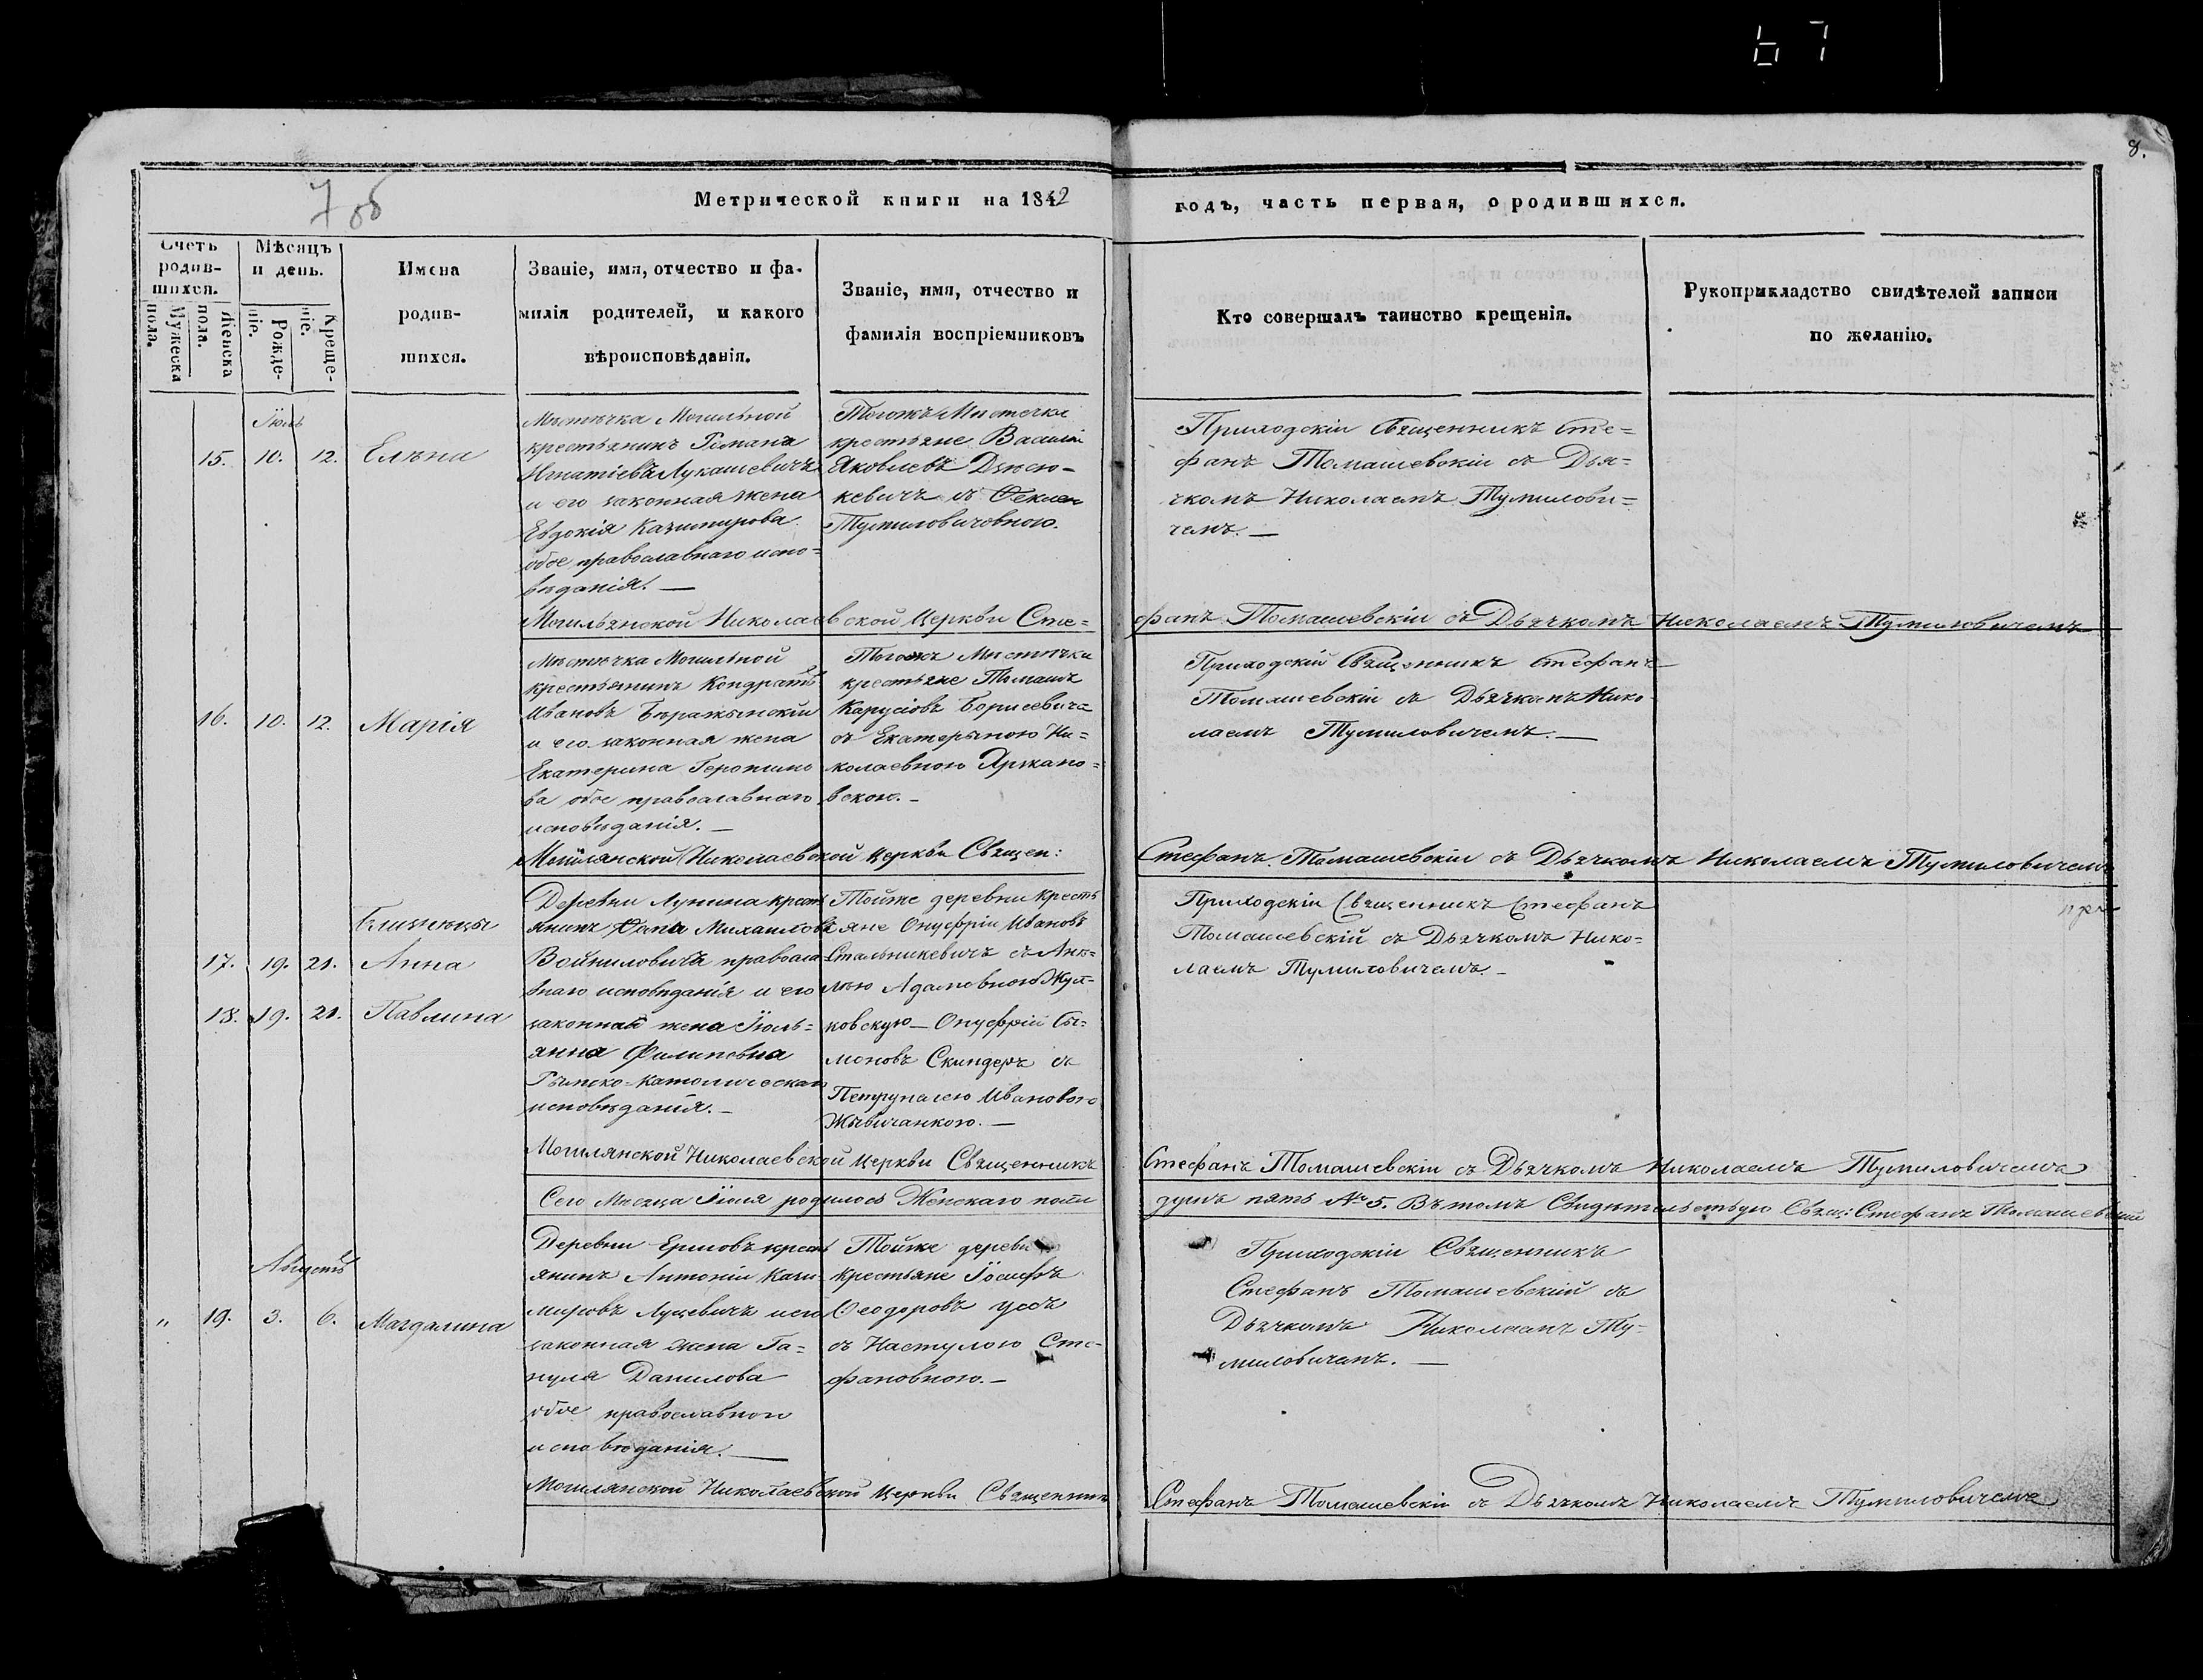 67
8.
7 об
Метрической книги на 1842
годъ, часть первая, о родившихся.
Счетъ родив-шихся.
Мужеска пола.
Женска пола.
Мѣсяцъ и день.
Рожде-ніе.
Креще-ніе.
Имена
родив-
шихся.
Званіе, имя, отчество и фа-
милія родителей, и какого
вѣроисповѣданія.
Званіе, имя, отчество и
фамилія воспріемниковъ
Кто совершалъ таинство крещенія.
Рукоприкладство свидѣтелей записи
по желанію.
Іюль
15. 10. 12. Елѣна
Мѣстѣчка Могильной
крестьянинъ Романъ
Игнатіевъ Лукашевичъ
и его законная жена
Евдокія Казимирова
обое православнаго испо=
вѣданія. —
Тогожъ Мистечка
крестьяне Василій
Яковлевъ
кевичъ съ
Тумиловичовною.
Приходскій Священникъ Сте=
фанъ Томашевскій съ Дья=
чкомъ Николаемъ Тумилови=
чемъ. —
Могильянской Николаевской Церкви Сте=
фанъ Томашевскій съ Дьячкомъ Николаемъ Тумиловичемъ
16. 10. 12. Марія
Мѣстѣчка Могильной
крестьянинъ Кондратъ
Ивановъ
и его законная жена
Екатерина Геронимо
ва обое православнаго
исповѣданія. —
Тогожъ Мѣстѣчка
крестьяне Томашъ
Борисевичъ
съ Екатерыною Ни=
колаевною Яржано=
вскою. —
Приходскій Священникъ Стефанъ
Томашевскій съ Дьячкомъ Нико
лаемъ Тумиловичемъ. —
Могилянской Николаевской Церкви Священ:
Стефанъ Томашевскій съ Дьячкомъ Николаемъ Тумиловичемъ
Близнецы
17. 19. 21. Анна
18. 19. 21. Павлина
Деревни Лунина крест
янинъ Фома Михаиловъ
Войниловичъ правосла
внаго исповѣданія и его
законная жена Іюль=
янна Филиповна
Рымско-католическаго
исповѣданія. —
Тойже деревни кресть
яне Онуфрій Ивановъ
Стальникевичъ съ Ан=
ною Адамовною Жул=
ковскую — Онуфрій Си=
моновъ Скиндеръ съ
Петрунелею Ивановою
Жывичанкою. —
Приходскій Священникъ Стефанъ
Томашевскій съ Дьячкомъ Нико=
лаемъ Тумиловичемъ. —
Могилянской Николаевской Церкви Священникъ
Стефанъ Томашевскій съ Дьячкомъ Николаемъ Тумиловичемъ
Сего Мѣсяца Іюля родилось Женскаго пола
душъ пять № 5. Въ томъ Свидѣтельствую Свящ: Стефанъ Томашевскій
Августъ
" 19. 3. 6. Магдалина
Деревни Ермовъ крест
янинъ Антоній Кази
мировъ Луцевичъ и его
законная жена Га=
нуля Данилова
обое православнои
исповѣданія. —
Тойже деревни
крестьяне Іосифъ
Ѳеодоровъ Усъ
съ Настулою Сте-
фановною. —
Приходскій Священникъ
Стефанъ Томашевскій съ
Дьячкомъ Николаемъ Ту-
миловичемъ. —
Могилянской Николаевской Церкви Священникъ
Стефанъ Томашевскій съ Дьячкомъ Николаемъ Тумиловичемъ